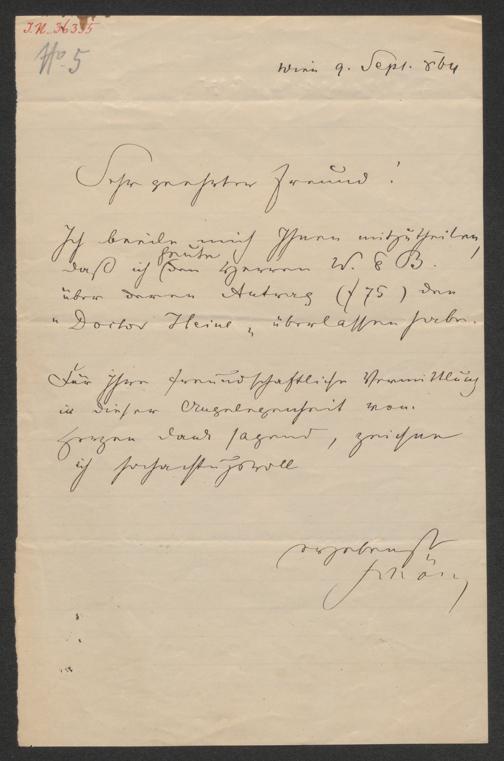 I.N. 36335
No 5
Wien 9. Sept. 864
Sehr geehrter Freund!
Ich beeile mich Ihnen mitzutheilen,
heute
daß ich den Herren W. & B.
über deren Antrag (f 75) den
"Doctor Heine" überlassen habe.
Für Ihre freundschaftliche Vermittlung
in dieser Angelegenheit von
Herzen Dank sagend, zeichne
ich hochachtungsvoll
ergebenst